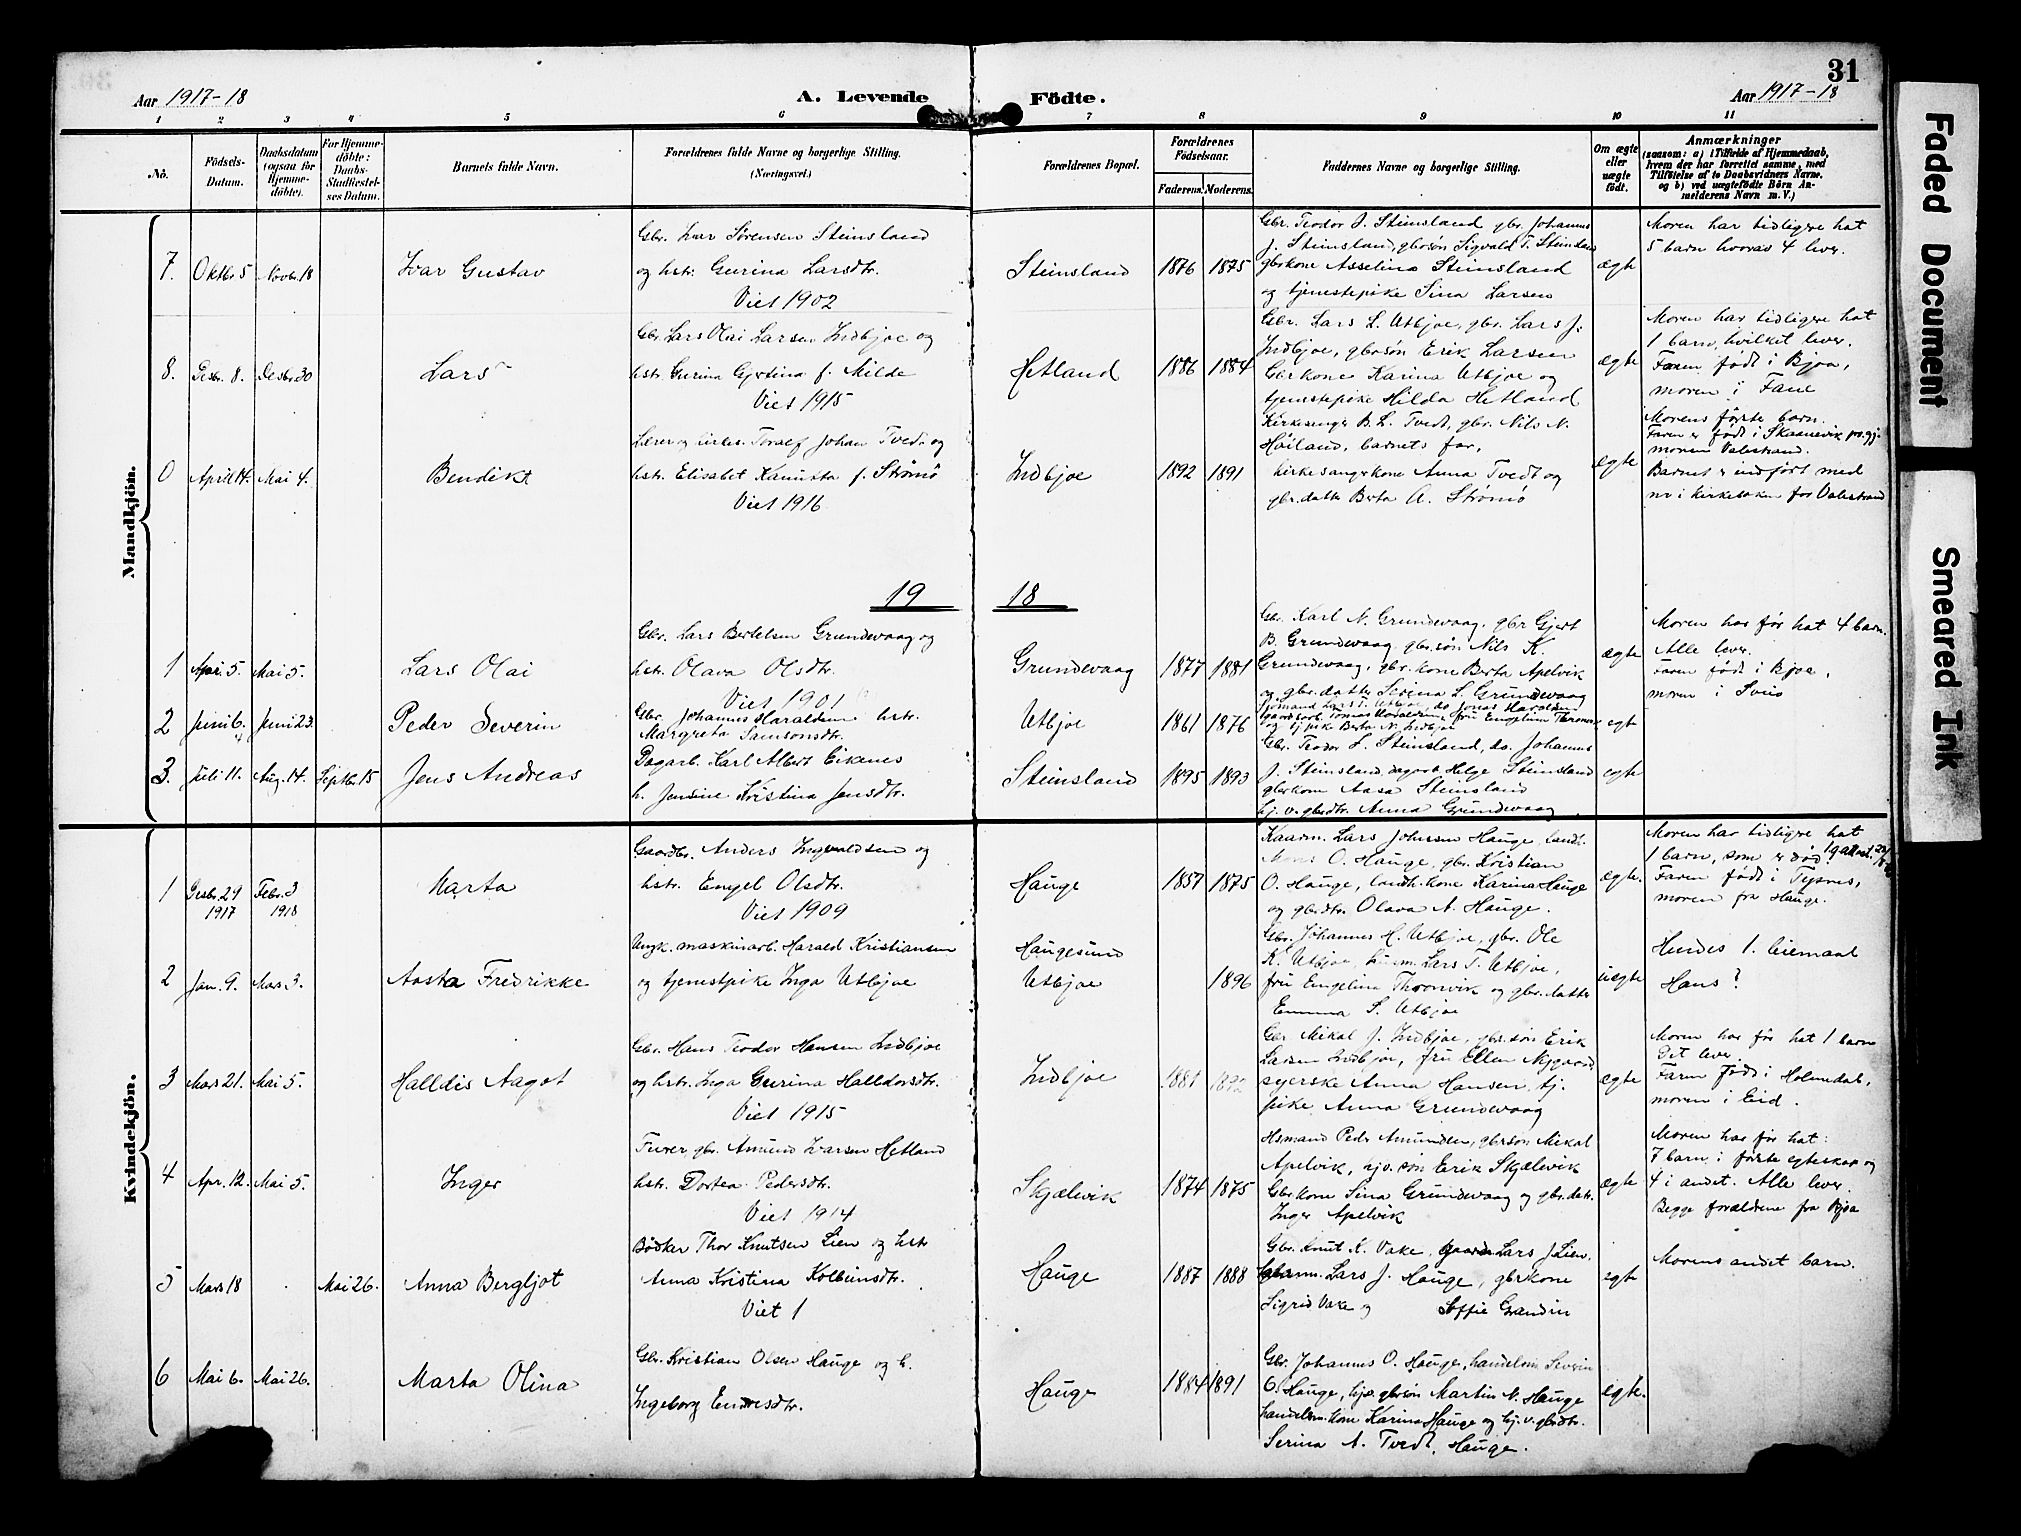 31
Aar 1917-18
A. Levende Födte.
Aar 1917-18
1 2 3 4 5 6 7 8 9 10 11
No.
Födsels-Datum.
Daabsdatum (ogsaa for Hjemmedöbte).
For Hjemmedöbte: Daabs-Stadfæstelses Datum.
Barnets fulde Navn.
Forældrenes fulde Navne og borgerlige Stilling.
(Næringsvei.)
Forældrenes Bopæl.
Forældrenes Födselsaar.
Faderens. Moderens.
Faddernes Navne og borgerlige Stilling.
Om ægte eller uægte födt.
Anmærkninger
(saasom: a) i Tilfælde af Hjemmedaab, hvem der har forrettet samme, med Tilföielse af to Daabsvidners Navne, og b) ved uægtefödte Börn Anmelderens Navn m. V.)
Mandkjön.
7. Oktbr. 5 Novbr. 18 Ivar Gustav
Gbr. Ivar Sørensen Steinsland
og hstr. Gurina Larsdtr.
Viet 1902
Steinsland 1876 1875
Gbr. Teodor J. Steinsland gbr. Johannes
J. Steinsland, gbrsøn Sigvald T. Steinsland
gbrkone Asselina Steinsland
og tjenestepike Sina Larsen
ægte
Moren har tidligere hat
5 barn hvorav 4 lever.
8. Desbr. 8. Desbr. 30 Lars
Gbr. Lars Olai Larsen Indbjoe og
hstr. Gurina Gjertina f. Milde
Viet 1915
Hetland 1886 1884
Gbr. Lars L. Utbjoe, gbr. Lars J.
Indbjoe, gbrsøn Erik Larsen
Gbrkone Karina Utbjoe og
tjenestepike Hilda Hetland
ægte
Moren har tidligere hat
1 barn, hvilket lever.
Faren født i Bjoa,
moren i Fane
0 April 14. Mai 4. Bendikt
Lærer og kirkes. Toralf Johan Tvedt og
hstr. Elisabet f. Strømø
Viet 1916
Indbjoe 1892 1891
Kirkesanger B. L. Tvedt, gbr. Nils N.
Høiland, barnets far,
kirkesangerkone Anna Tvedt og
gbr.datter Berta A. Strømø
ægte
Morens første barn.
Faren er født i Skaanevik prgj.
moren Valestrand.
Barnet er indført med
nr i kirkeboken for Valestrand
19 18
1 Apr. 5. Mai 5. Lars Olai
Gbr. Lars Bertelsen Grundevaag og
hstr. Olava Olsdtr.
Viet 1901
Grundevaag 1877 1881
Gbr. Karl N. Grundevaag, gbr Gjert
B. Grundevaag, gbr.søn Nils K.
Grundevaag, gbr.kone Berta Apelvik
og gbr.datter Serina L. Grundevaag
ægte
Moren har før hat 4 barn.
Alle lever.
Faren født i Bjoe,
moren i Sveio
2 Juni 6. Juni 23. Peder Severin
Gbr. Johannes Haraldsen hstr.
Margreta Samsonsdtr.
Utbjoe 1861 1876
Sjømand Lars T. Utbjoe, do Jonas Haraldsen
Tomas Haraldsen, fru Engelina Thronvik
og tj.pike Berta N. Indbjoe
egte
3. Juli 11. Aug. 14. Septbr. 15 Jens Andreas
Dagarb. Karl Albert Eiknes
h. Jensine Kristina Jensdtr.
Steinsland 1895 1893
Gbr. Teodor L. Steinsland, do. Johannes
J. Steinsland, dagarb. Helge Steinsland
gbrkone Aasa Steinsland
hj. v. gbrdtr. Anna Grundevaag
egte
Kvindekjön.
1 Desbr. 29 1917 Febr. 3 1918 Marta
Gaardbr. Anders Ingvaldsen og
hstr. Engel Olsdtr.
Viet 1909
Hauge 1857 1875
Kaarm. Lars Johnsen Hauge, landh.
Mons O. Hauge, gbr. Kristian
O. Hauge, landh.kone Karina Hauge
og gbrdtr. Olava A. Hauge.
ægte.
Moren har tidligere hat
1 barn, som er død.
Faren født i Tysnes,
moren fra Hauge.
2 Jan. 9. Mars 3. Aasta Fredrikke
Ungk. maskinarb. Harald Kristiansen
og tjenestpike Inga Utbjoe
Haugesund
Utbjoe 1896
Gbr. Johannes H. Utbjoe, gbr. Ole
K. Utbjoe, husm. Lars T. Utbjoe,
fru Engelina Thronvik og gbr.datter
Emma S. Utbjoe
uegte
Hendes 1. leiermaal
Hans ?
3 Mars 21. Mai 5. Halldis Aagot
Gbr. Hans Teodor Hansen Indbjoe
og hstr. Inga Gurina Halldorsdtr.
Viet 1915
Indbjoe 1881 1892
Gbr Mikal J. Indbjoe, gbr.søn Erik
Larsen Indbjoe, fru Ellen Nygaard
syerske Anna Hansen tj.
pike Anna Grundevaag
ægte
Moren har før hat 1 barn
Det lever.
Faren født i Holmedal,
moren i Eid.
4 Apr. 12. Mai 5. Inger
Furer, gbr. Amund Ivarsen Hetland
hstr. Dortea Pedersdtr.
Viet 1914
Skjælevik 1874 1875
Hsmand Peder Amundsen, gbrsøn Mikal
Apelvik, hjv.søn Erik Skjælevik
Gbrkone Sina Grundevaag og gbr.datr.
Inger Apelvik
ægte
Moren har før hat:
7 barn i første egteskap og
4 i andet. Alle lever.
Begge forældrene fra Bjoa
5 Mars 18 Mai 26. Anna Bergljot
Bødker Thor Knutsen Lien og hstr
Anna Kristina Kolbeinsdtr.
Viet 1
Hauge 1887 1888
Gbr. Knut K. Vake, Lars J. Lien,
Lars J. Hauge, gbrkone
Sigrid Vake og Soffie Grandin
egte
Morens andet barn.
6 Mai 6. Mai 26. Marta Olina
Gbr. Kristian Olsen Hauge og h.
Ingeborg Endresdtr.
Hauge 1884 1891
Gbr. Johannes O. Hauge, handelsm. Severin
O. Hauge, hjv. gbrsøn Martin N. Hauge
handelsm.kone Karina Hauge og hj. v. gbrdtr.
Serina A. Tvedt, Hauge.
egte.
Faded Document
Smeared Ink